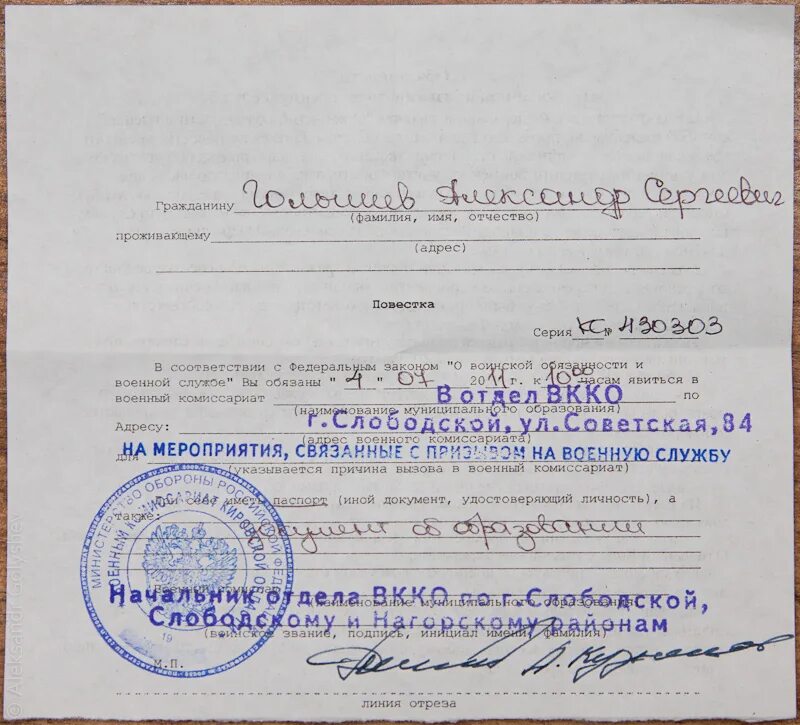 Гражданину Голышев Александр Сергеевич
(фамилия, имя, отчество)
проживающему
(адрес)
Повестка
Серия КС № 430303
В соответствии с Федеральным законом "О воинской обязанности и
военной службе" Вы обязаны "4" 07 2011г. к 10 00 часам явиться в
военный комиссариат В отдел ВККО по
(наименование муниципального образования)
Адресу: г.Слободской, ул.Советская, 84
(адрес военного комиссариата)
для НА МЕРОПРИЯТИЯ, СВЯЗАННЫЕ С ПРИЗЫВОМ НА ВОЕННУЮ СЛУЖБУ
(указывается причина вызова в военный комиссариат)
При себе иметь паспорт (иной документ, удостоверяющий личность), а
также: документ об образовании
МИНИСТЕРСТВО ОБОРОНЫ РОССИЙСКОЙ ФЕДЕРАЦИИ
ВОЕННЫЙ КОМИССАРИАТ КИРОВСКОЙ ОБЛАСТИ
Начальник отдела ВККО по г.Слободской,
(наименование муниципального образования)
Слободскому и Нагорскому районам
(воинское звание, подпись, инициал имени, фамилия)
М.П.
линия отреза
© Aleksandr Golyshev